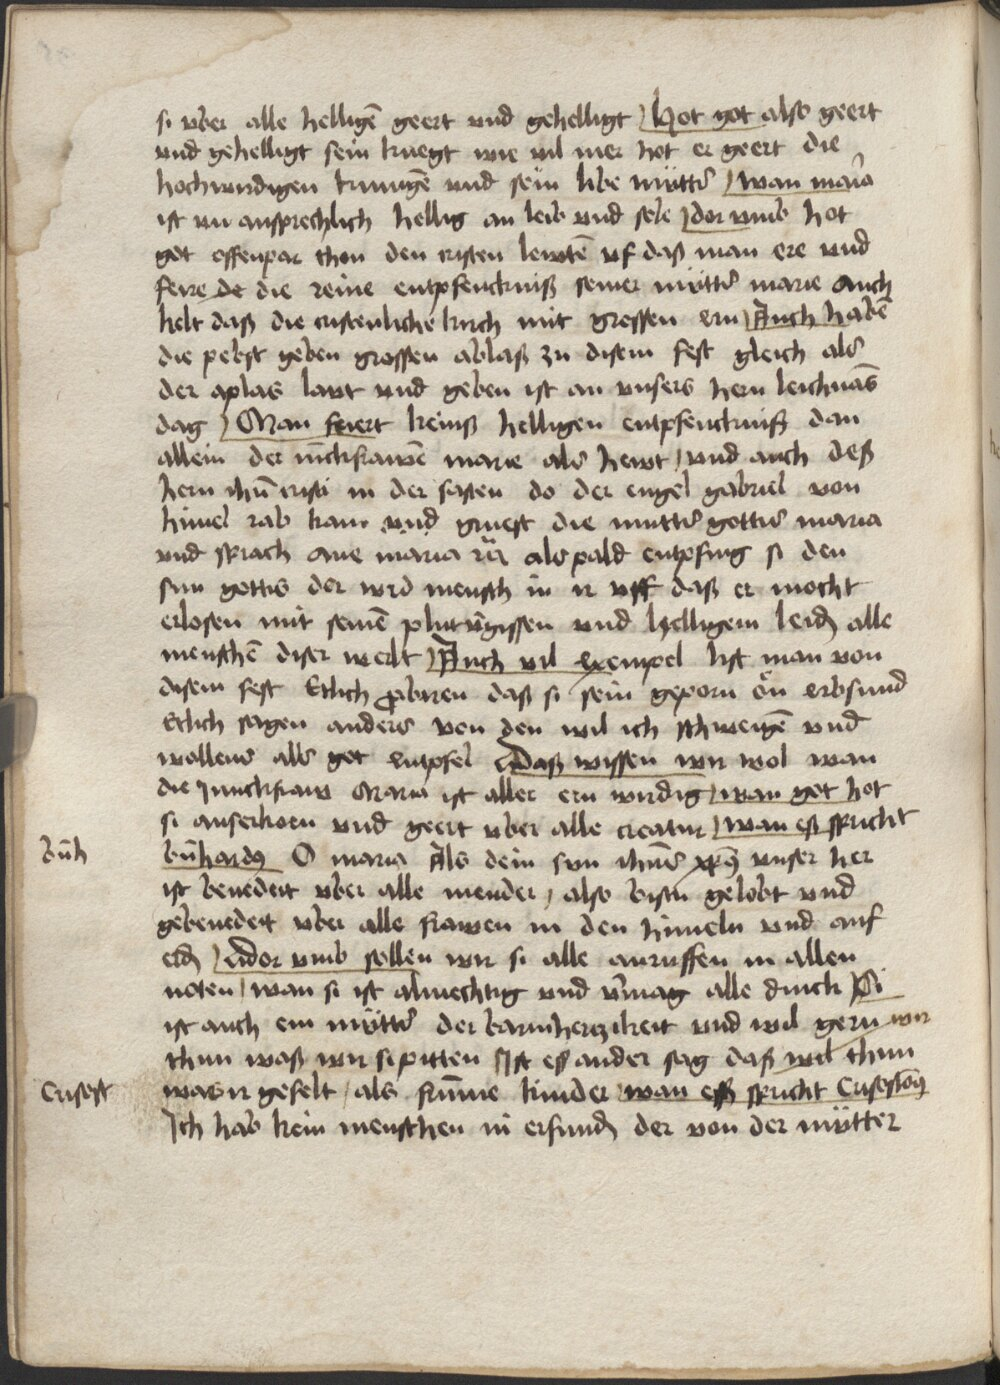 si vber alle helligē geert vnd gehelligt / Hot got also geert
vnd gehelligt sein knegt wie vil mer hot er geert die
hochwirdigen kunigē vnd sein libe mūtter / wan maria
ist vn ansprechlich hellig an leib vnd sele / dor vmb hot
got offenpar thon den cristen lewtē vf daß man ere vnd
feire die reine entpfencknuß seiner mūtter marie Auch
helt daß die cristenliche kirch mit grossen ern / Auch habē
die pebst geben grossen ablaß zu disem fest gleich als
der aplas lavt vnd geben ist an vnsers hern leichnās
dag / Man feiert keinß helligen entpfencknuß dan
allein der iūckfrawē marie als hewt / vnd auch deß
hern ihū cristi in der fasten do der engel gabriel von
himel rab kam vnd gruest die mutter gottes maria
vnd sprach aue maria als pald entpfing si den
sun gottis der wrd mensch in ir vff daß er mocht
erlosen mit seinē plutv̄gissen vnd helligem leidē alle
menschē diser werlt / Auch vil exempel list man von
disem fest Etlich probiren daß si sein geporn ön erbsund
Etlich sagen anders von den wil ich schweigē vnd
wollens als got entpfel / Daß wissen wir wol wan
die Junckfraw Maria ist aller ern wirdig / wan got hot
si auserkorn vnd geert vber alle creatur / wan eß spricht
b̄nh
b̄nhardꝰ O maria Als dein sun ihūs xp̄s vnser her
ist benedeit vber alle mender / also bistu gelobt vnd
gebenedeit vber alle frawen in den himeln vnd auf
erdē / Dor vmb sollen wir si alle anruffen in allen
noten / wan si ist almechtig vnd v̄mag alle dinck / Si
ist auch ein mūtter der barmherczikeit vnd wil gern wir
thun waß wir si pitten / Ist eß ander sag daß wil thun
Crisost
was ir gefelt / als frūme kinder / wan eß spricht Crisostōꝰ
Ich hab kein menschen in erfundē der von der mūtter